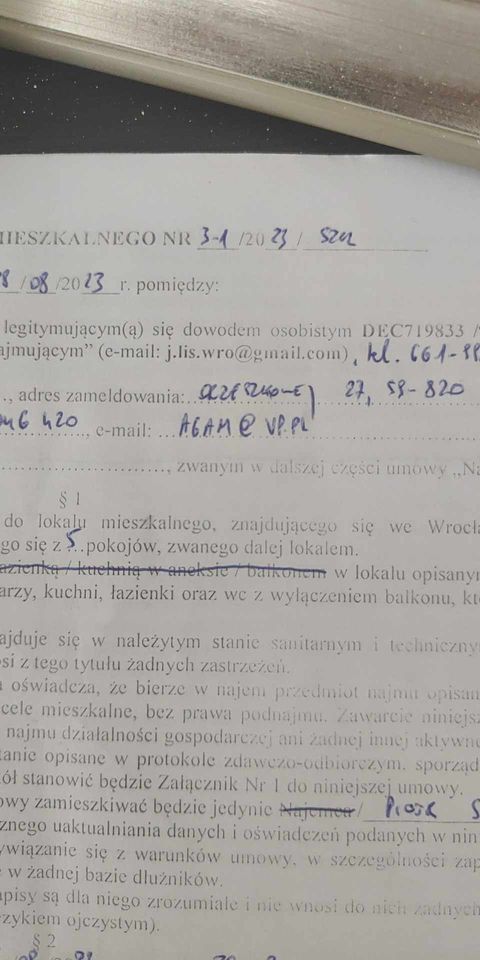 MIESZKALNEGO NR 3-1 /2023 /
/08 /2023 r. pomiędzy:
legitymującym(ą) się dowodem osobistym DEC719833 /
ajmującym” (e-mail: j.lis.wro@gmail.com), kl. 661-
..., adres zameldowania: 27, 59-820
420 ..., e-mail: AGAM@VP.PL
..., zwanym w dalszej części umowy „Na
§ 1
do lokalu mieszkalnego, znajdującego się we Wrocła
go się z 5 pokojów, zwanego dalej lokalem.
azienką / kuchnią w aneksie / balkonem w lokalu opisanym
arzy, kuchni, łazienki oraz wc z wyłączeniem balkonu, kt
ajduje się w należytym stanie sanitarnym i techniczny
si z tego tytułu żadnych zastrzeżeń.
a oświadcza, że bierze w najem przedmiot najmu opisan
cele mieszkalne, bez prawa podnajmu. Zawarcie niniejsz
najmu działalności gospodarczej ani żadnej innej aktywn
tanie opisane w protokole zdawczo-odbiorczym, sporząd
ół stanowić będzie Załącznik Nr 1 do niniejszej umowy.
owy zamieszkiwać będzie jedynie Najemca /
cznego uaktualniania danych i oświadczeń podanych w nin
ywiązanie się z warunków umowy, w szczególności zap
w żadnej bazie dłużników.
apisy są dla niego zrozumiałe i nie wnosi do nich żadnych
ęzykiem ojczystym).
§ 2